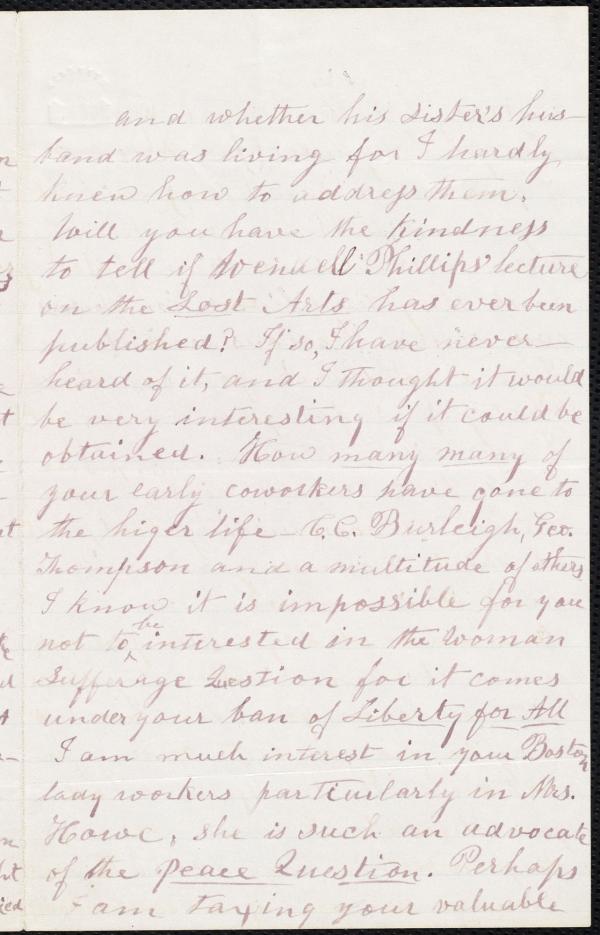 and whether his sister's hus-
band was living for I hardly
knew how to address them.
Will you have the kindness
to tell if Wendell Phillips' lecture
on the Lost Arts has ever been
published? If so, I have never
heard of it, and I thought it would
be very interesting if it could be
obtained. How many many of
your early coworkers have gone to
the higer life - C.C. Burleigh, Geo.
Thompson and a multitude of others
I know it is impossible for you
not to be interested in the Woman
Sufferage Question for it comes
under your ban of Liberty for All
I am much interest in your Boston
lady workers particularly in Mrs.
Howe, she is such an advocate
of the Peace Question. Perhaps
I am taxing your valuable